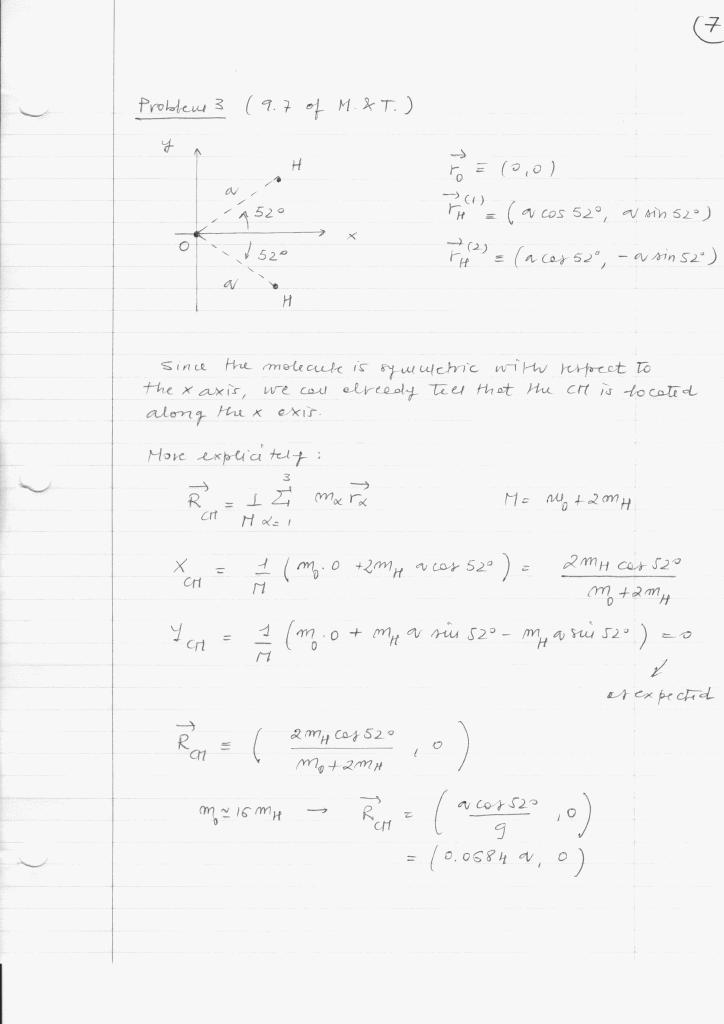 7
Problem 3 (9.7 of M. & T.)
y
H
a
52°
O
x
52°
a
H
r⃗₀ ≡ (0,0)
r⃗_H^(1) = (a cos 52°, a sin 52°)
r⃗_H^(2) = (a cos 52°, - a sin 52°)
Since the molecule is symmetric with respect to
the x axis, we can already tell that the CM is located
along the x axis.
More explicitely :
R⃗_CM = 1/M Σ_{α=1}^{3} m_α r⃗_α    M = m₀ + 2m_H
X_CM = 1/M (m₀·0 + 2m_H a cos 52°) = 2m_H cos 52° / (m₀ + 2m_H)
Y_CM = 1/M (m₀·0 + m_H a sin 52° - m_H a sin 52°) = 0
as expected
R⃗_CM = (2m_H cos 52° / (m₀ + 2m_H), 0)
m₀ ≃ 16 m_H → R⃗_CM = (a cos 52° / 9, 0)
= (0.0684 a, 0)